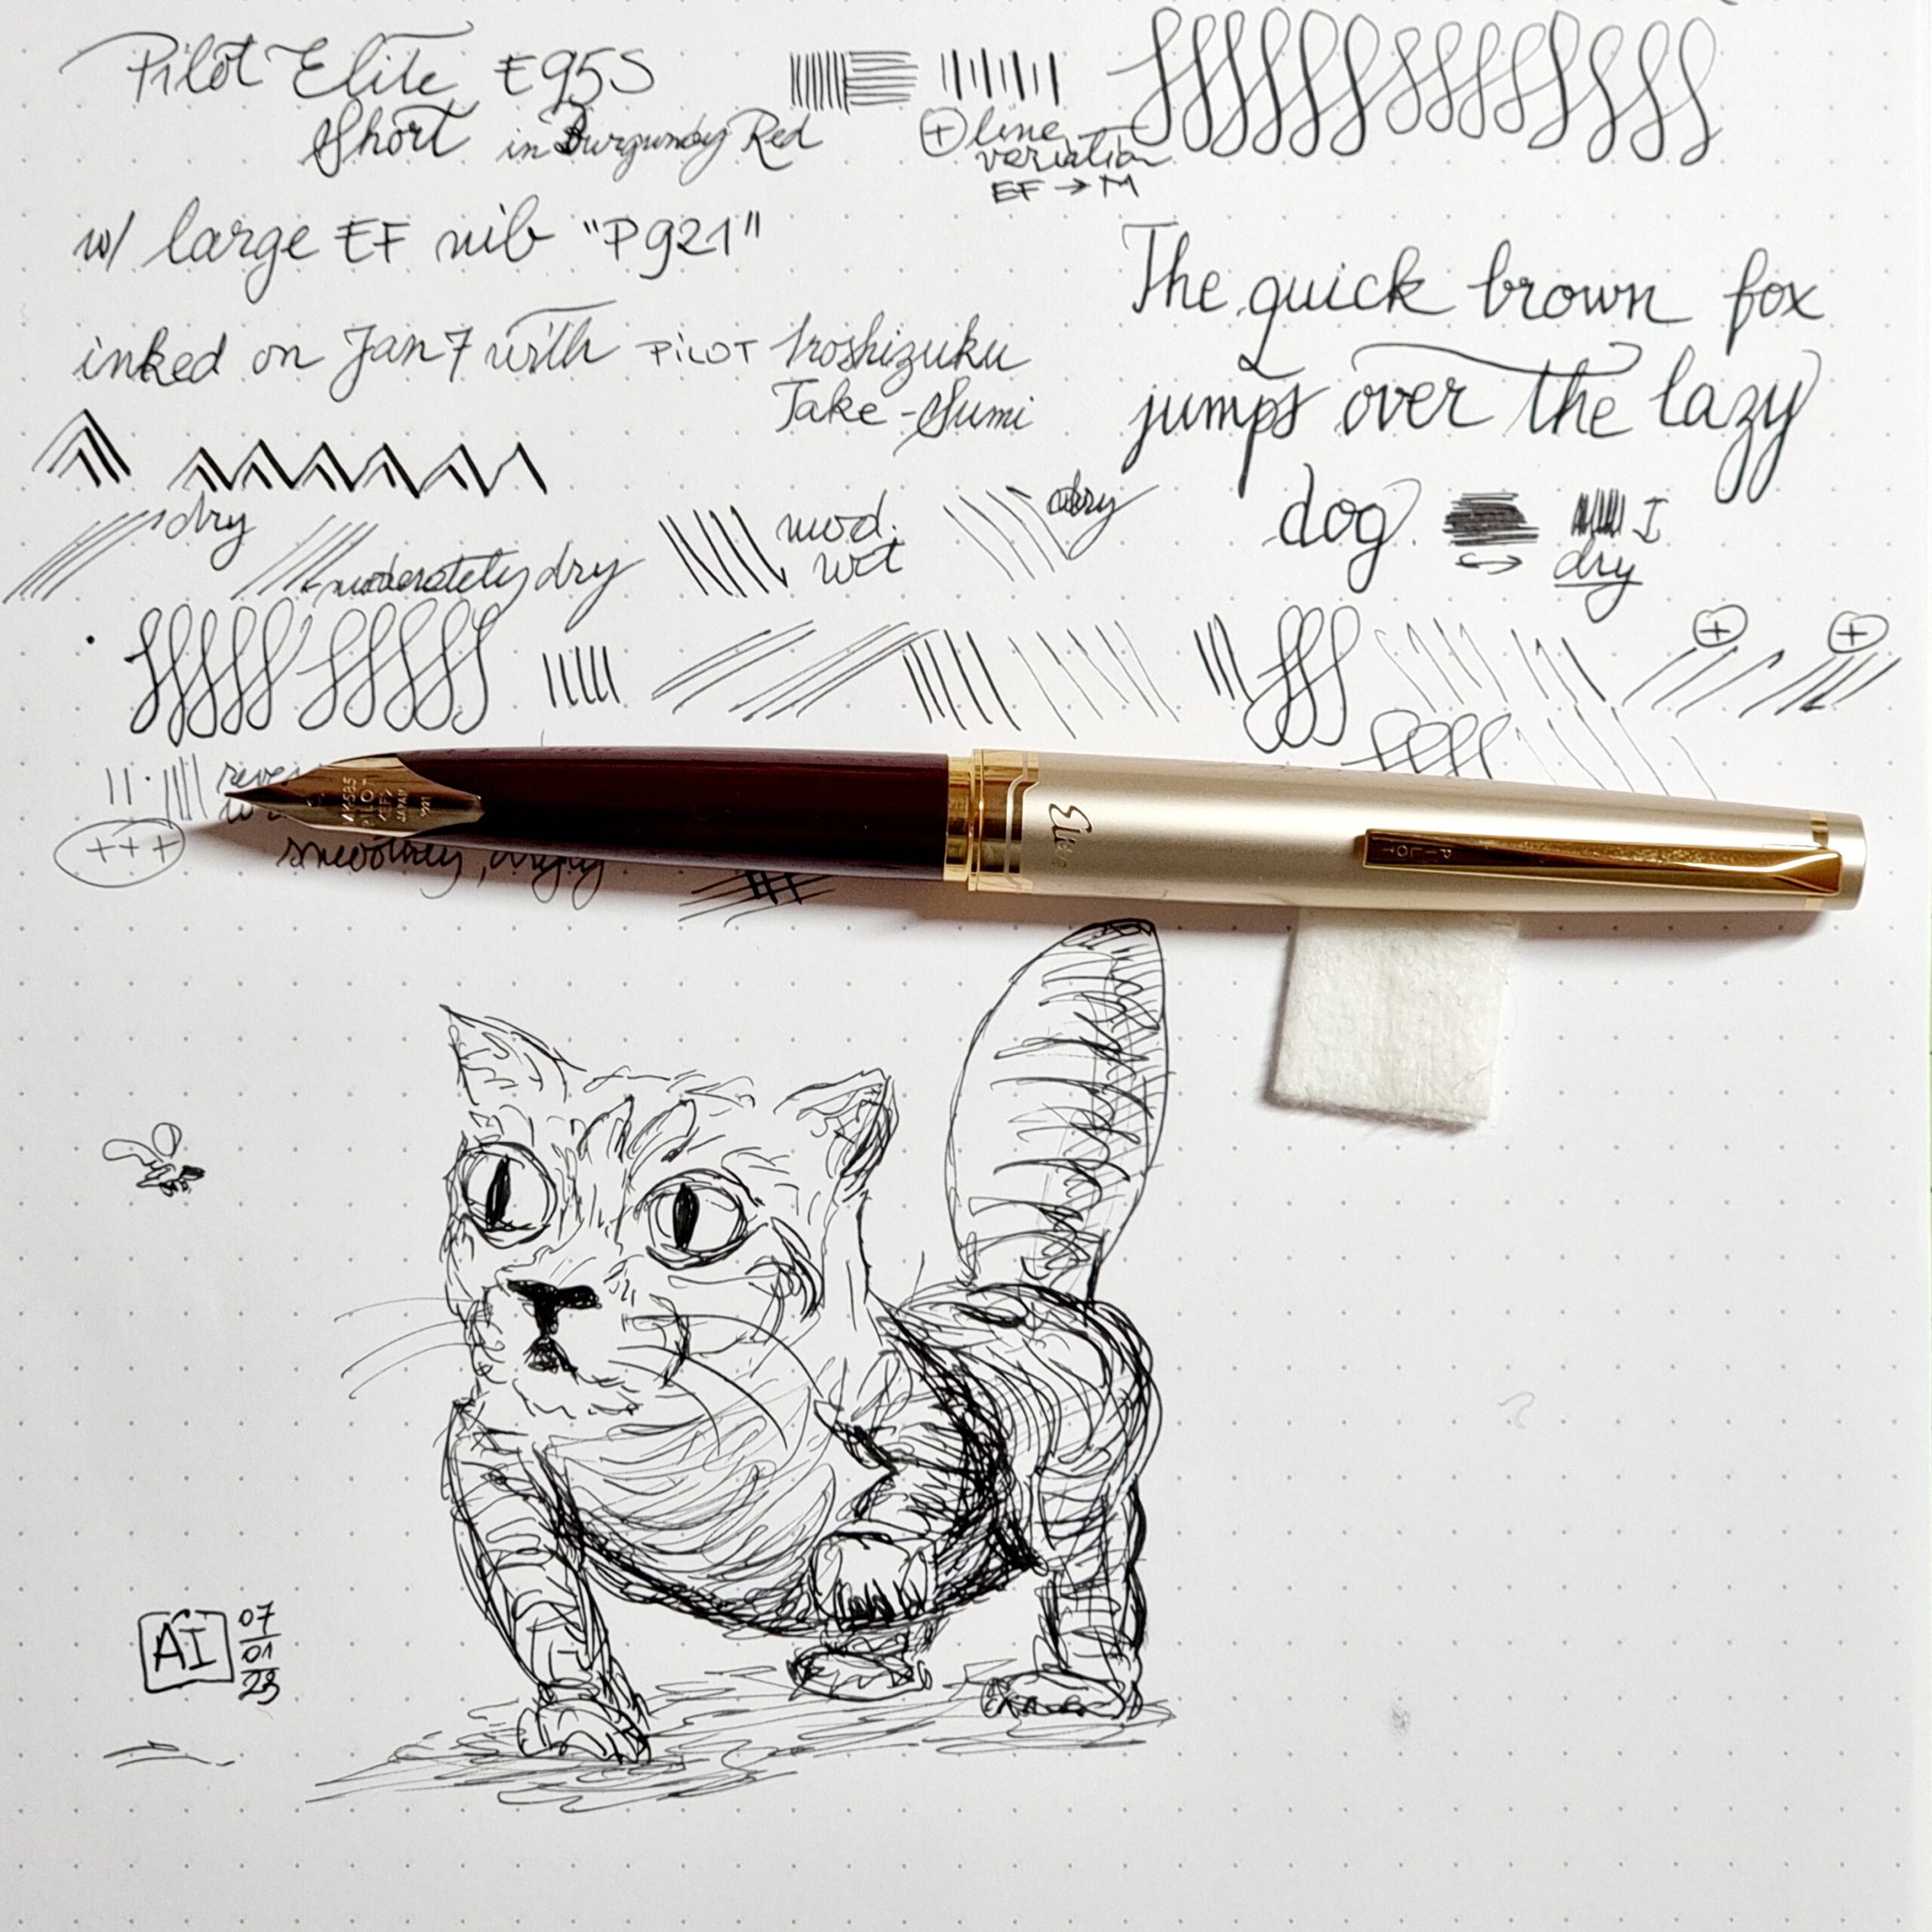 Pilot Elite E95S
Short in Burgundy Red
⊕ line
variation
EF → M
w/ large EF nib "P921"
inked on Jan 7 with PILOT Iroshizuku
Take-Sumi
The quick brown fox
jumps over the lazy
dog
dry
dry
moderately dry
mod.
wet
dry
+
+
14K-585
PILOT
<EF>
JAPAN
P921
Elite
PILOT
+++
AI
07
01
23